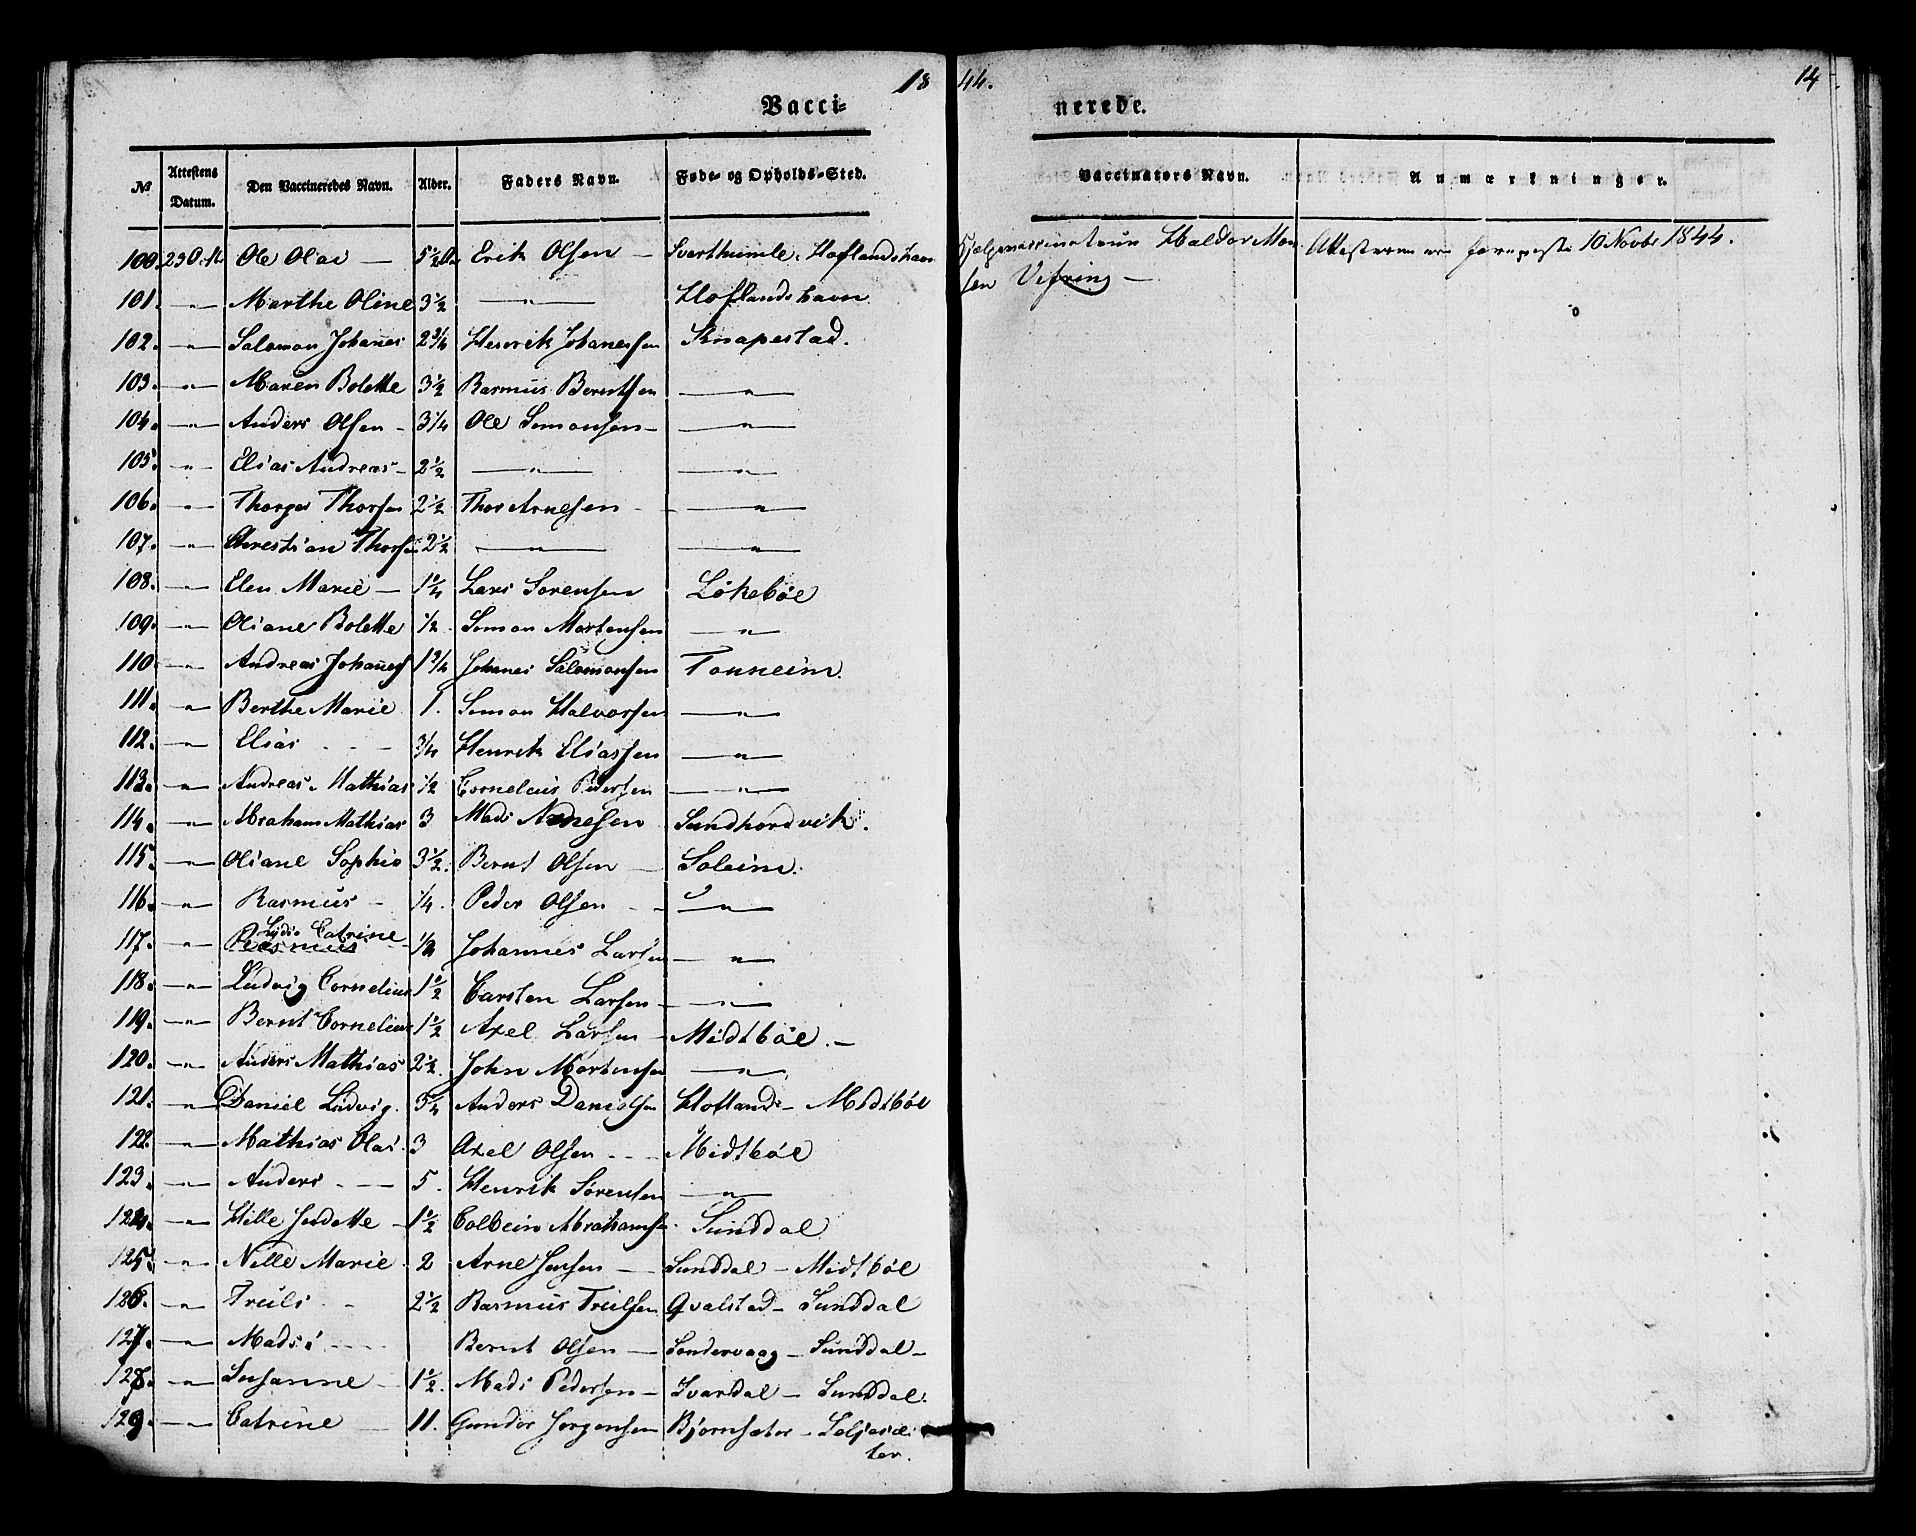 1844. 14
Vacci- nerede.
№ Attestens Datum. Den Vaccineredes Navn. Alder. Faders Navn. Føde- og Opholds-Sted. Vaccinators Navn. Anmærkninger.
100. Ole Olai — 5½ Erik Olsen — Svarthumle. Hoflandshavn Hjelpevaccinateur Haldor Mon Attesterne ere 10 Novbr 1844.
101. —"— Marthe Oline 3½ —"— Hoflandshavn sen Vefring —
102. —"— Salomon Johanes 2¾ Henrik Johanessen Knapestad.
103. —"— Maren Bolette 3½ Rasmus Berntsen —"—
104. —"— Anders Olsen - 3¼ Ole Simonsen - —"—
105. —"— Elias Andreas - 2½ —"— —"—
106. —"— Thorger Thorsen 2½ Thor Arnesen - —"—
107. —"— Christian Thorsen 2½ —"— —"—
108. —"— Elen Marie — 1¼ Lars Sørensen Løkebøe
109. —"— Oliane Bolette ½ Simon Mortensen —"—
110. —"— Andreas Johannes 1¾ Johanes Salomonsen Tonheim
111. —"— Berthe Marie 1. Simon Halvorsen —"—
112. —"— Elias - - - ¾ Henrik Eliassen —"—
113. —"— Andreas Mathias ½ Cornelius Pedersen —"—
114. —"— Abraham Mathias 3 Mads Sundhordvik.
115. —"— Oliane Sophie 3½. Bernt Olsen — Soleim.
116. —"— Rasmus - ¼. Peder Olsen - —"—
Lydia Catrine
117. —"— Rasmus Johannes Larsen —"—
118. —"— Ludvig Cornelius 1½ Carsten Larsen - —"—
119. —"— Bernt Cornelius 1½ Axel Larsen - Midtbøe. -
120. —"— Anders Mathias 2½. John Mortensen —"—
121. —"— Daniel Ludvig. Anders Danielsen Hofland - Midtbøe
122. —"— Mathias Olai 3 Axel Olsen - - - Midtbøe
123. —"— Anders - - — 5. Henrik Sørensen —"—
124. —"— Hille Judette - 1½ Colbein Abrahamsen Sunddal
125. —"— Nille Marie 2 Arne Jensen — Sunddal - Midtbøe
126. —"— Truls - - 2½ Rasmus Trulsen Qvalstad - Sunddal
127. —"— Mads - - - - Bernt Olsen — Søndervaag - Sunddal -
128. —"— Susanne - 1½. Mads Pedersen - Svardal - Sunddal.
129. —"— Catrine — 11. Gunder Jørgensen Bjørnsæter -
ter.